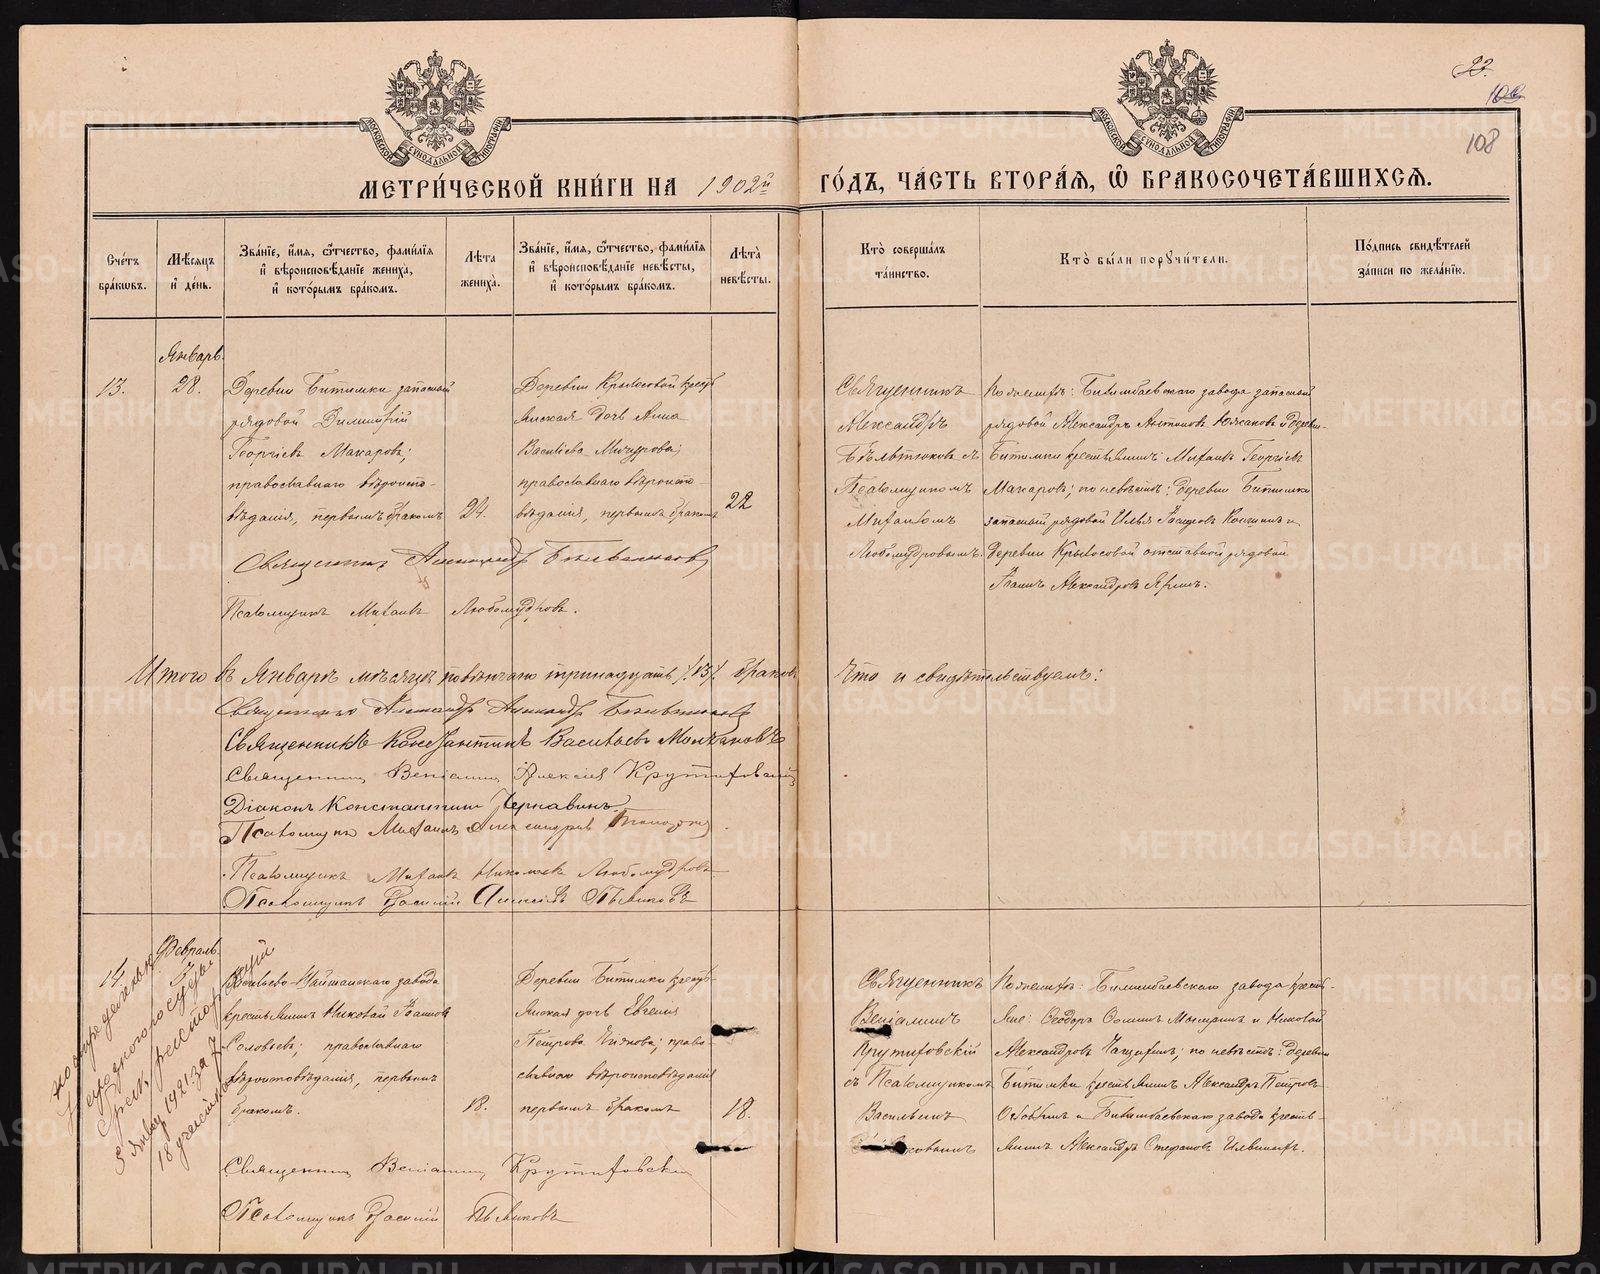 23.
108
МОСКОВСКОЙ СѴНОДАЛЬНОЙ ТИПОГРАФІИ
МОСКОВСКОЙ СѴНОДАЛЬНОЙ ТИПОГРАФІИ
МЕТРИ́ЧЕСКОЙ КНИ́ГИ НА 1902й ГО́ДЪ, ЧА́СТЬ ВТОРА́Ѧ, Ѡ҆ БРАКОСОЧЕТА́ВШИХСѦ.
Сче́тъ бра́кѡвъ.
Мѣ́сѧцъ и҆ де́нь.
Зва́нїе, и҆́мѧ, ѻ҆́тчество, фами́лїѧ и҆ вѣроисповѣ́данїе жениха̀, и҆ кото́рымъ бра́комъ.
Лѣ́та жениха̀.
Зва́нїе, и҆́мѧ, ѻ҆́тчество, фами́лїѧ и҆ вѣроисповѣ́данїе невѣ́сты, и҆ кото́рымъ бра́комъ.
Лѣ́та невѣ́сты.
Кто̀ соверша́лъ та́инство.
Кто̀ бы́ли порꙋчи́тели.
По́дпись свидѣ́телей за́писи по жела́нїю.
Январь.
13.
28.
Деревни Битимки запасный
рядовой Димитрій
Георгіевъ Макаровъ;
православнаго вѣроиспо-
вѣданія, первымъ бракомъ
24.
Деревни Крылосовой крестъ
янская дочь Анна
Васильева Мичурова;
православнаго вѣроиспо-
вѣданія, первымъ бракомъ
22
Священникъ
Александръ
съ
Псаломщикомъ
Михаиломъ
Любомудровымъ.
По женихѣ: Билимбаевскаго завода запасный
рядовой Александръ Антоновъ и деревни
Битимки крестьянинъ Михаилъ Георгіевъ
Макаровъ; по невѣстѣ: деревни Битимки
запасный рядовой Илья и
деревни Крылосовой отставной рядовой
Іоаннъ Александровъ Яринъ.
Священникъ Александръ
Псаломщикъ Михаилъ Любомудровъ.
Итого въ Январѣ мѣсяцѣ повѣнчано тринадцать /:13/: браковъ
Что и свидѣтельствуемъ:
Священникъ Александръ Александр
Священникъ Константинъ Васильевъ Молчановъ
Священникъ Веніаминъ Алексіевъ Крутиховскій
Діаконъ Константинъ Державинъ
Псаломщикъ Михаилъ Александровъ
Псаломщикъ Михаилъ Николаевъ Любомудровъ
Псаломщикъ Василій Алексіевъ Пьянковъ
Февраль.
14.
3.
Васильево-Шайтанскаго завода
крестьянинъ Николай Іоанновъ
Соловьевъ; православнаго
вѣроисповѣданія, первымъ
бракомъ.
18.
Деревни Битимки крестъ-
янская дочь Евгенія
Петрова право-
славнаго вѣроисповѣданія
первымъ бракомъ
18.
Священникъ
Веніаминъ
Крутиховскій
съ Псаломщикомъ
Васильемъ
По женихѣ: Билимбаевскаго завода крестъ-
яне: Ѳеодоръ и Николай
Александровъ по невѣстѣ: деревни
Битимки крестьянинъ Александръ Петровъ
и Билимбаевскаго завода крестъ-
янинъ Александръ Стефановъ
Священникъ Веніаминъ Крутиховскій
Псаломщикъ Василій Пьянковъ
по опредѣленію
5 Январ 1921 за 7
METRIKI.GASO-URAL.RU